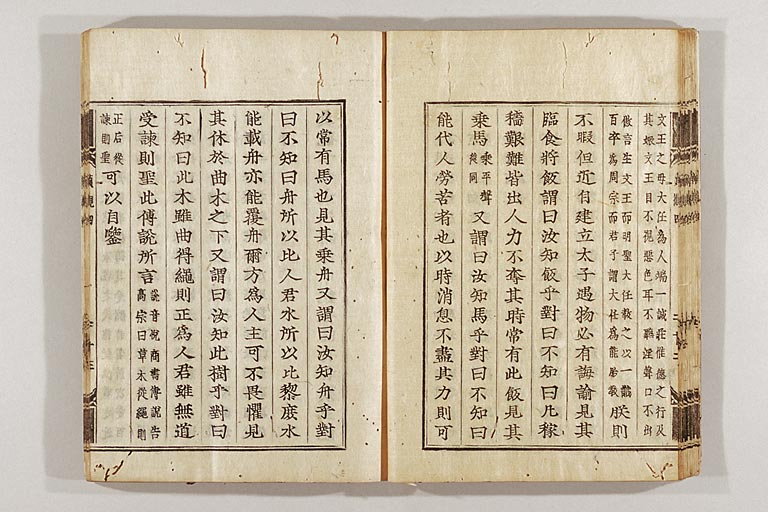 文王之母大任為人端一誠莊惟德之行及
其娠文王目不視惡色耳不聽淫聲口不出
傲言生文王而明聖大任教之以一識
百卒為周宗而君子謂大任為能胎教
朕則
不暇但近自建立太子遇物必有誨諭見其
臨食將飯謂曰汝知飯乎對曰不知曰凡稼
穡艱難皆出人力不奪其時常有此飯見其
乘馬乘平聲後同又謂曰汝知馬乎對曰不知曰
能代人勞苦者也以時消息不盡其力則可
以常有馬也見其乘舟又謂曰汝知舟乎對
曰不知曰舟所以比人君水所以比黎庶水
能載舟亦能覆舟爾方為人主可不畏懼見
其休於曲木之下又謂曰汝知此樹乎對曰
不知曰此木雖曲得繩則正為人君雖無道
受諫則聖此傅說所言說音悅商書傅說告高宗曰草木從繩則
正后從諫則聖可以自鑒